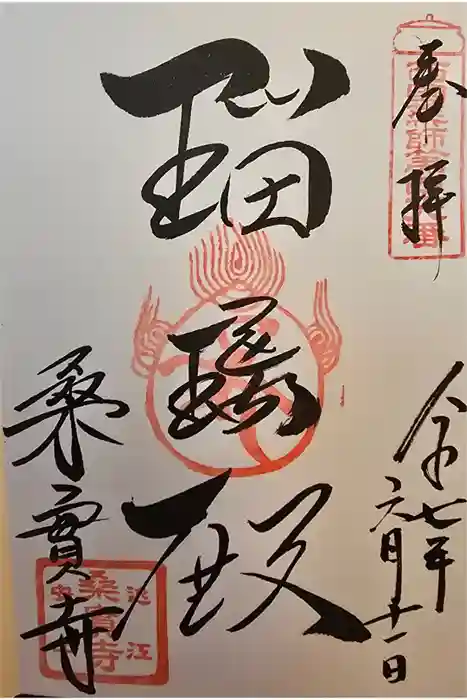 奉拝
令和七年
六月十一日
瑠璃殿
桑實寺
近江
桑實寺